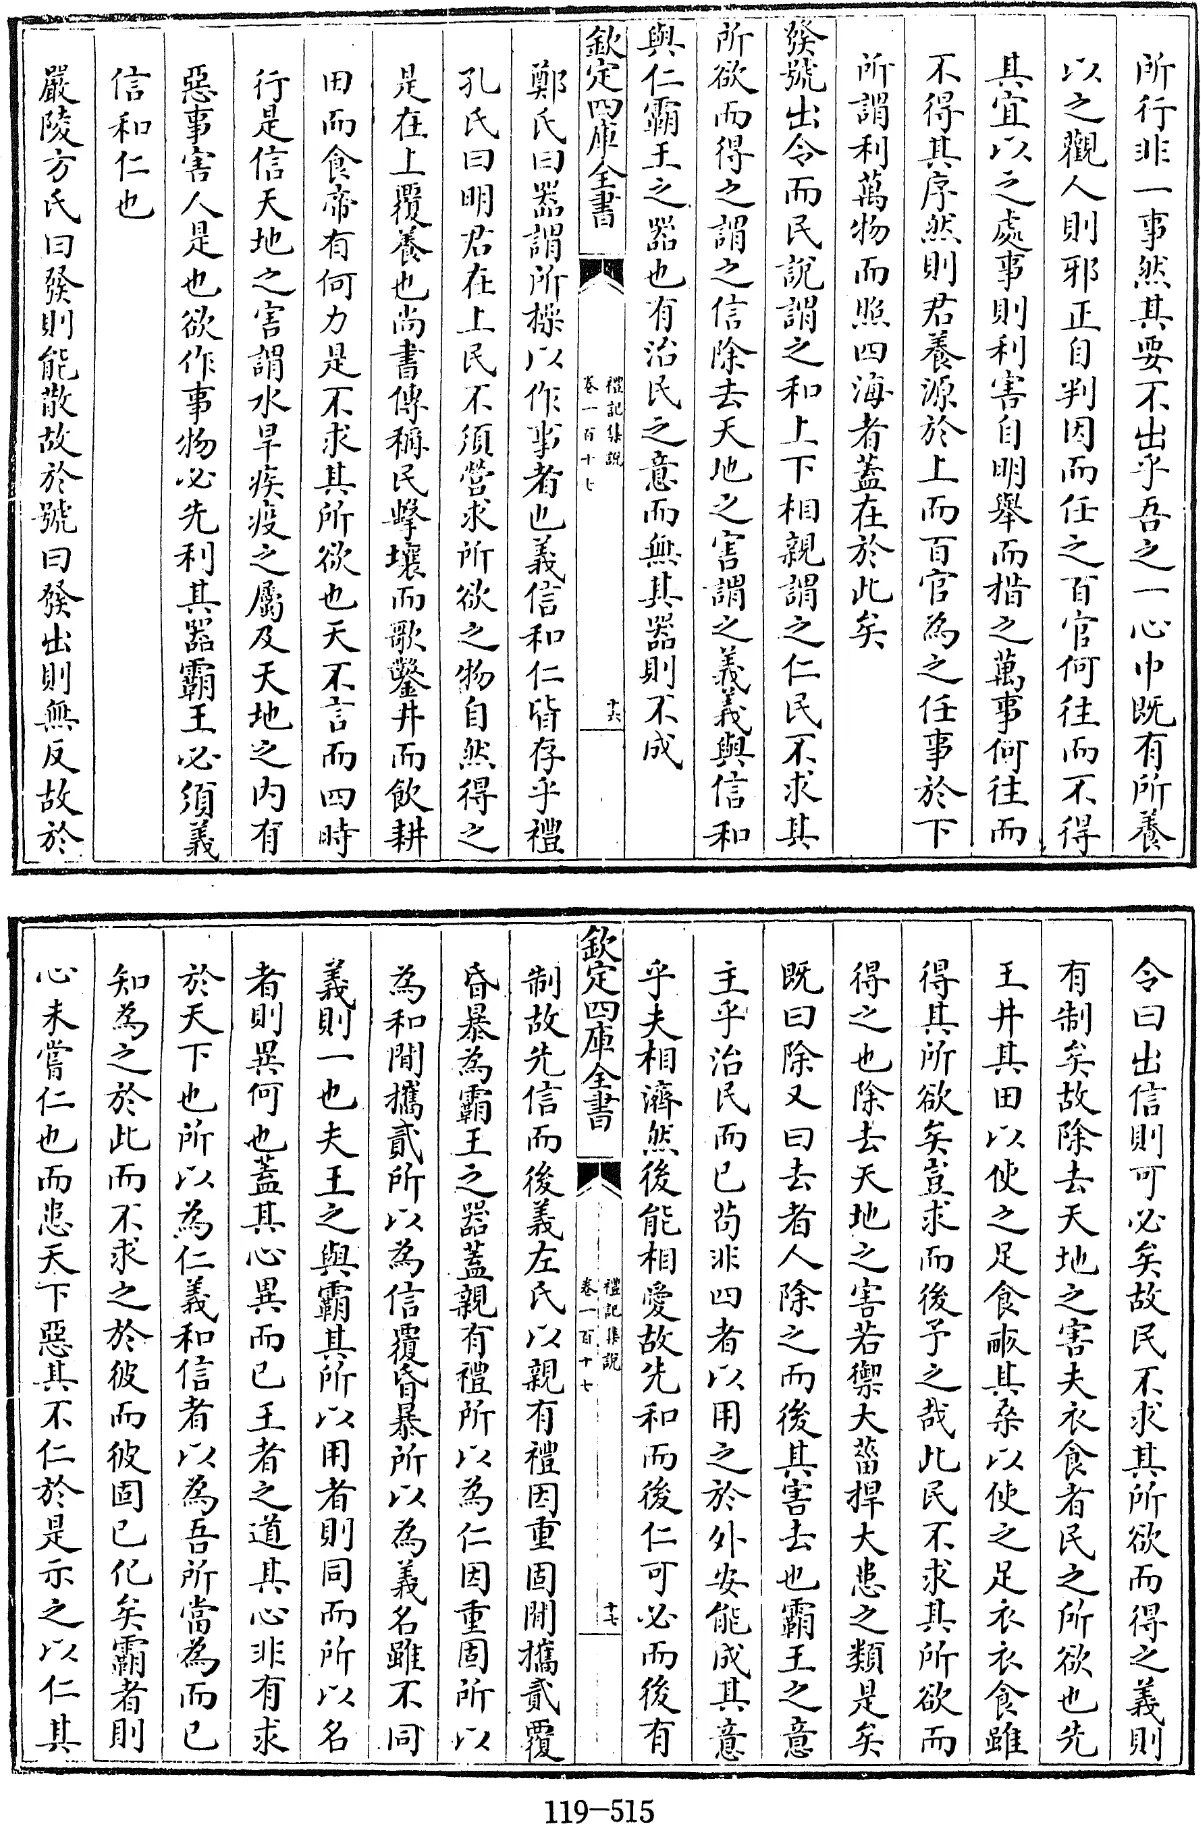 所行非一事然其要不出乎吾之一心中既有所養
以之觀人則邪正自判因而任之百官何往而不得
其宜以之處事則利害自明舉而措之萬事何往而
不得其序然則君養源於上而百官為之任事於下
所謂利萬物而照四海者蓋在於此矣
發號出令而民說謂之和上下相親謂之仁民不求其
所欲而得之謂之信除去天地之害謂之義義與信和
與仁霸王之器也有治民之意而無其器則不成
欽定四庫全書
禮記集說
卷一百十七
十六
鄭氏曰器謂所操以作事者也義信和仁皆存乎禮
孔氏曰明君在上民不須營求所欲之物自然得之
是在上覆養也尚書傳稱民擊壤而歌鑿井而飲耕
田而食帝有何力是不求其所欲也天不言而四時
行是信天地之害謂水旱疾疫之屬及天地之内有
惡事害人是也欲作事物必先利其器霸王必須義
信和仁也
嚴陵方氏曰發則能散故於號曰發出則無反故於
令曰出信則可必矣故民不求其所欲而得之義則
有制矣故除去天地之害夫衣食者民之所欲也先
王井其田以使之足食畞其桑以使之足衣衣食雖
得其所欲矣豈求而後予之哉此民不求其所欲而
得之也除去天地之害若禦大菑捍大患之類是矣
既曰除又曰去者人除之而後其害去也霸王之意
主乎治民而已苟非四者以用之於外安能成其意
乎夫相濟然後能相愛故先和而後仁可必而後有
欽定四庫全書
禮記集說
卷一百十七
十七
制故先信而後義左氏以親有禮因重固閒攜貳覆
昏暴為霸王之器蓋親有禮所以為仁因重固所以
為和閒攜貳所以為信覆昏暴所以為義名雖不同
義則一也夫王之與霸其所以用者則同而所以名
者則異何也蓋其心異而已王者之道其心非有求
於天下也所以為仁義和信者以為吾所當為而已
知為之於此而不求之於彼而彼固已化矣霸者則
心未嘗仁也而患天下惡其不仁於是示之以仁其
119-515